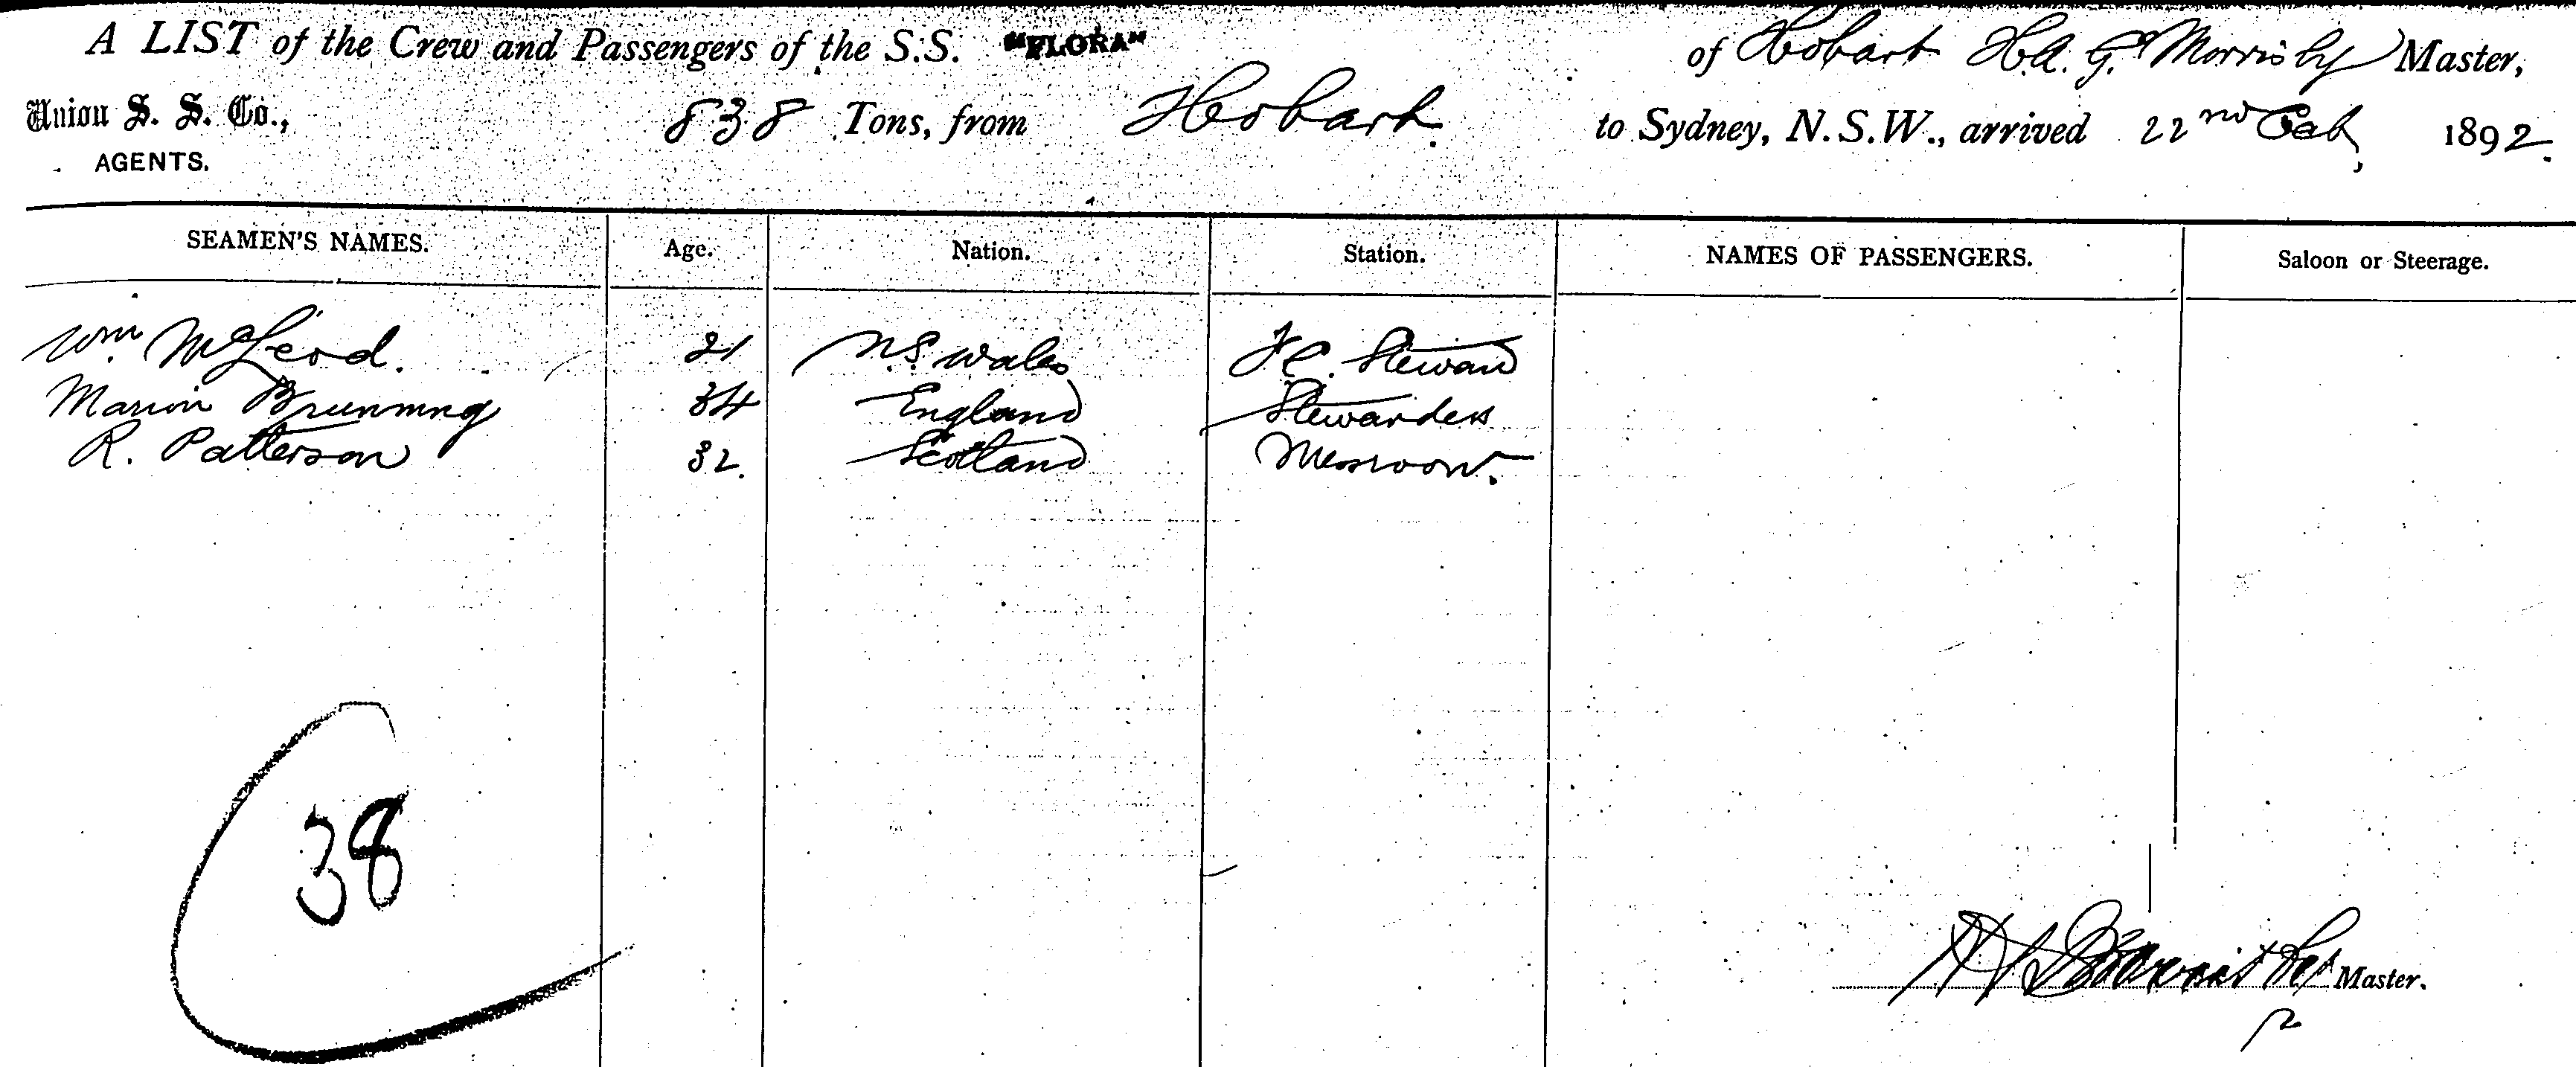 A LIST of the Crew and Passengers of the S.S. "FLORA" of Hobart H.A. G. Morrisby Master,
Union S. S. Co., 838 Tons, from Hobart. to Sydney, N.S.W., arrived 22nd Feb, 1892.
AGENTS.
SEAMEN'S NAMES. Age. Nation. Station. NAMES OF PASSENGERS. Saloon or Steerage.
Wm. McLeod. 21 N.S. Wales F.C. Steward
Marion Brunning 34 England Stewardess
R. Patterson 32. Scotland Messroom.
38
Master.